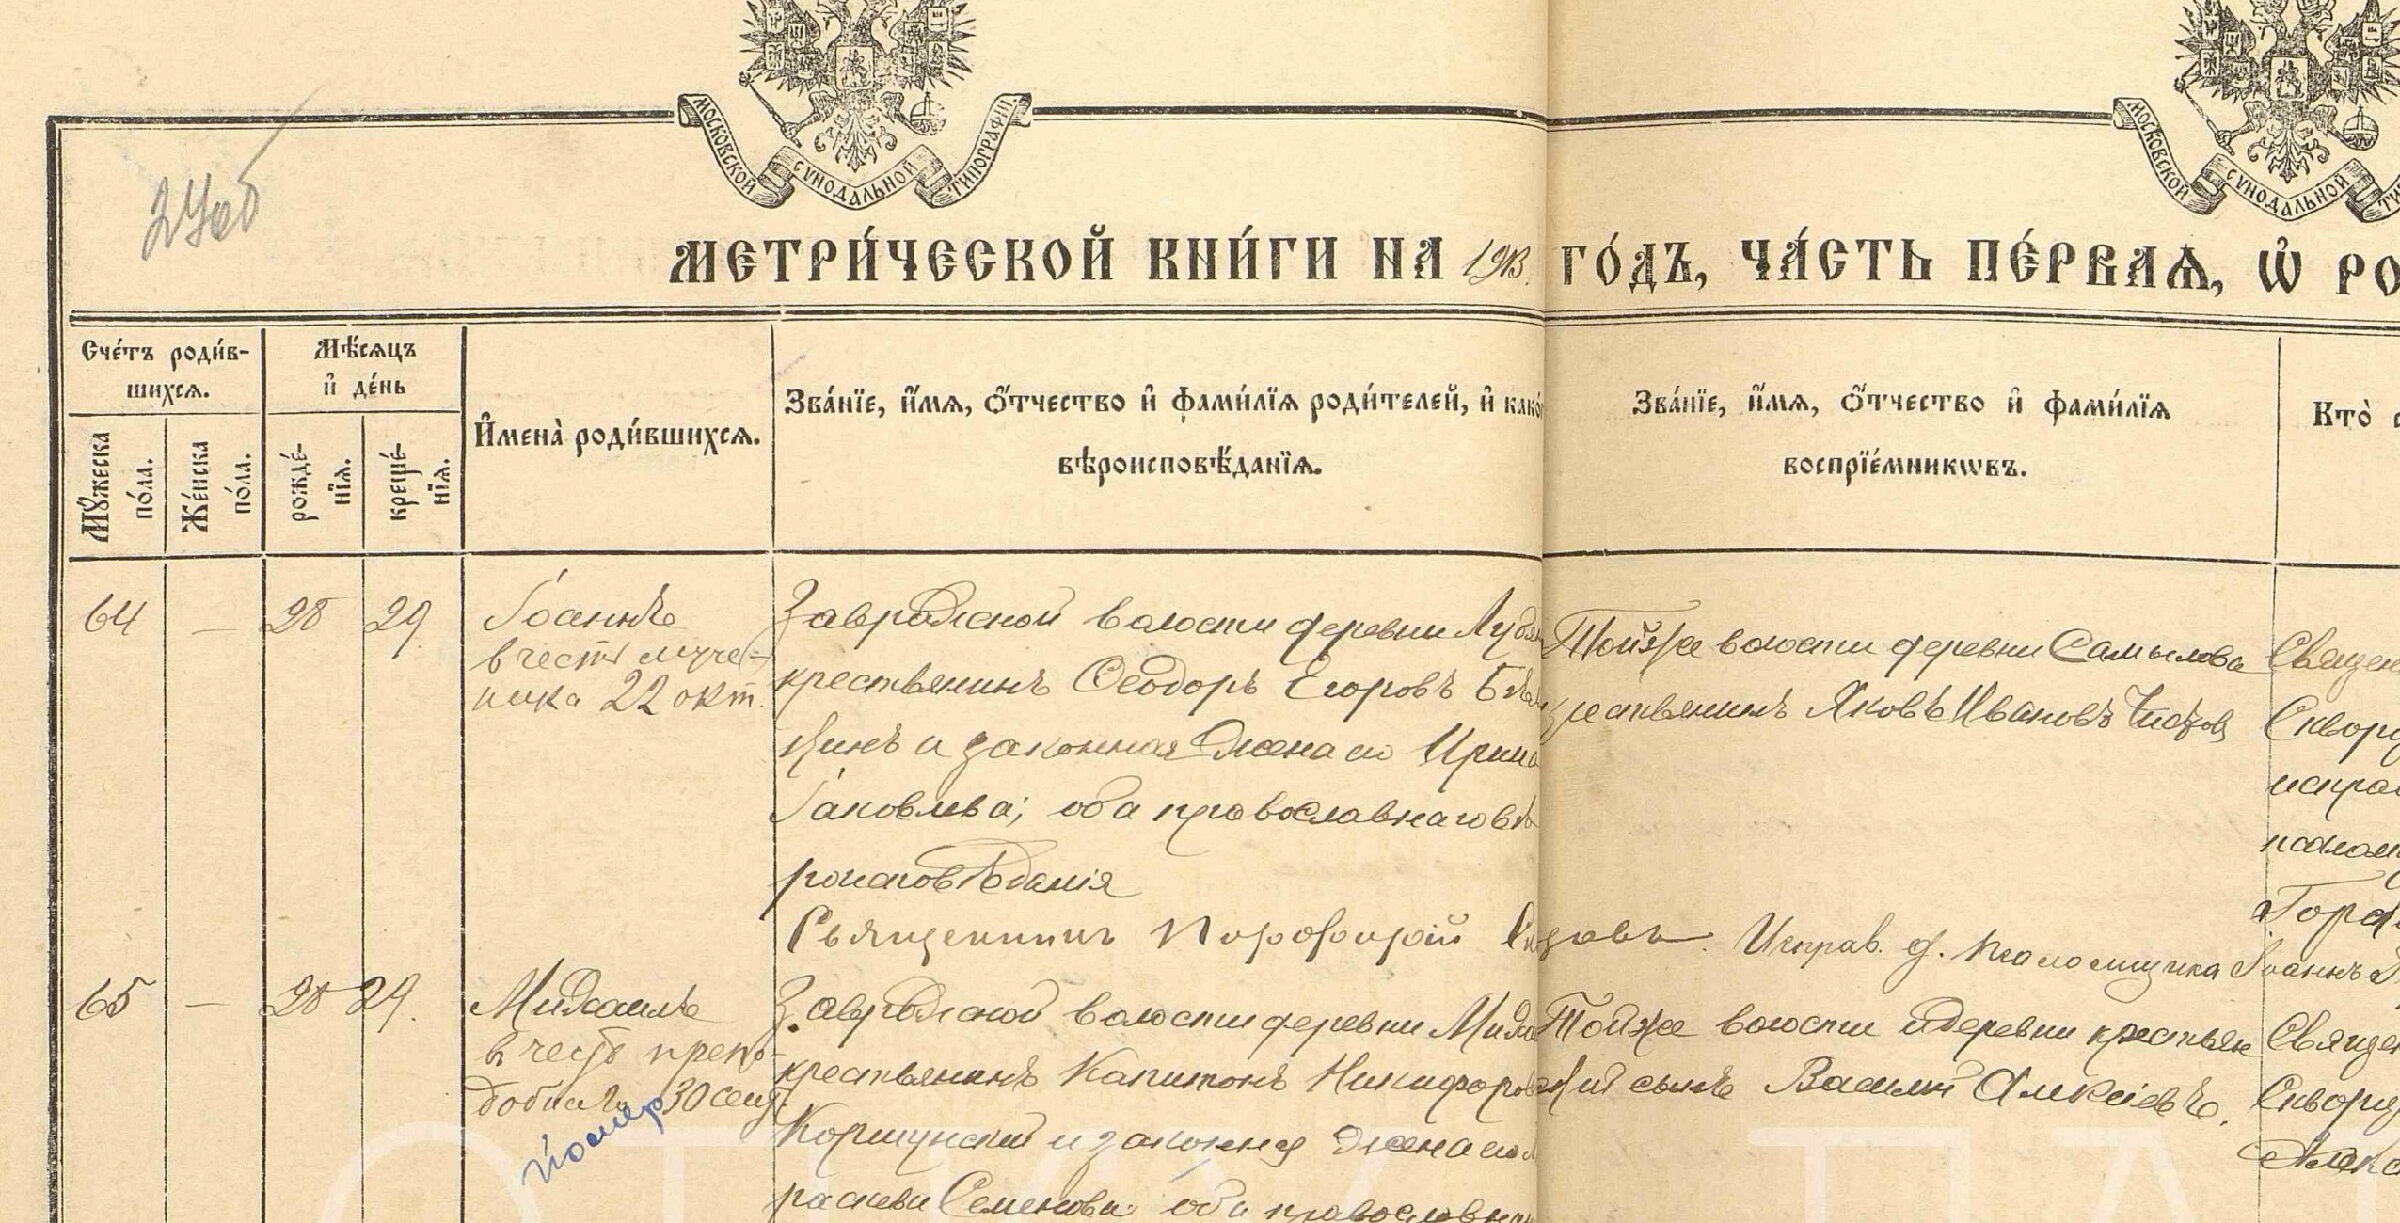 МОСКОВСКОЙ СѴНОДАЛЬНОЙ ТИПОГРАФІИ
МОСКОВСКОЙ СѴНОДАЛЬНОЙ
МЕТРИ́ЧЕСКОЙ КНИ́ГИ НА 1913 ГО́ДЪ, ЧА́СТЬ ПЕ́РВАѦ, Ѽ РО
Сче́тъ роди́в-
шихсѧ.
Мѣ́сѧцъ
и҆ де́нь
Мꙋ́жеска по́ла.
Же́нска по́ла.
рожде́-нїѧ.
креще́-нїѧ.
И҆мена̀ роди́вшихсѧ.
Зва́нїе, и҆́мѧ, ѻ҆́тчество и҆ фами́лїѧ роди́телей, и҆ како́
вѣроисповѣ́данїѧ.
Зва́нїе, и҆́мѧ, ѻ҆́тчество и҆ фами́лїѧ
воспрїе́мникѡвъ.
Кто̀
64 — 28 29
Іоаннъ
в честь муче-
ника 22 окт.
Завражской волости деревни
крестьянинъ Ѳеодоръ Егоровъ
и законная жена его Ирина
Іаковлева; оба православнаго вѣ
роисповѣданія
Тойже волости деревни Самылова
крестьянинъ Яковъ Ивановъ
Священ
Скворц
исправ
псалом
Священникъ Порфирій Исправ. д. псаломщика Іоаннъ
65 — 28 29.
Михаилъ
в честь препо-
добнаго 30 сент.
помер
Завражской волости деревни
крестьянинъ Капитонъ Никифоров
Коршунский и законная жена его
раскева Семенова оба православна
Тойже волости и деревни крестьян
скій сынъ Василий Алексіевъ.
Священ
Скворц
Алекс